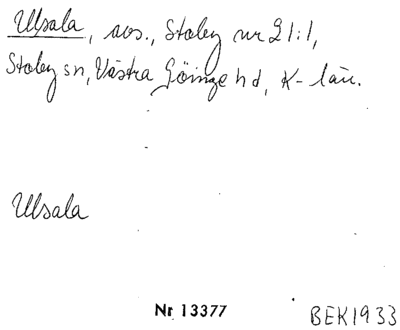 Ulsala, avs., Stoby nr 21:1,
Stoby sn, Västra Göinge hd, K-län.
Ulsala
Nr 13377
BEK1933